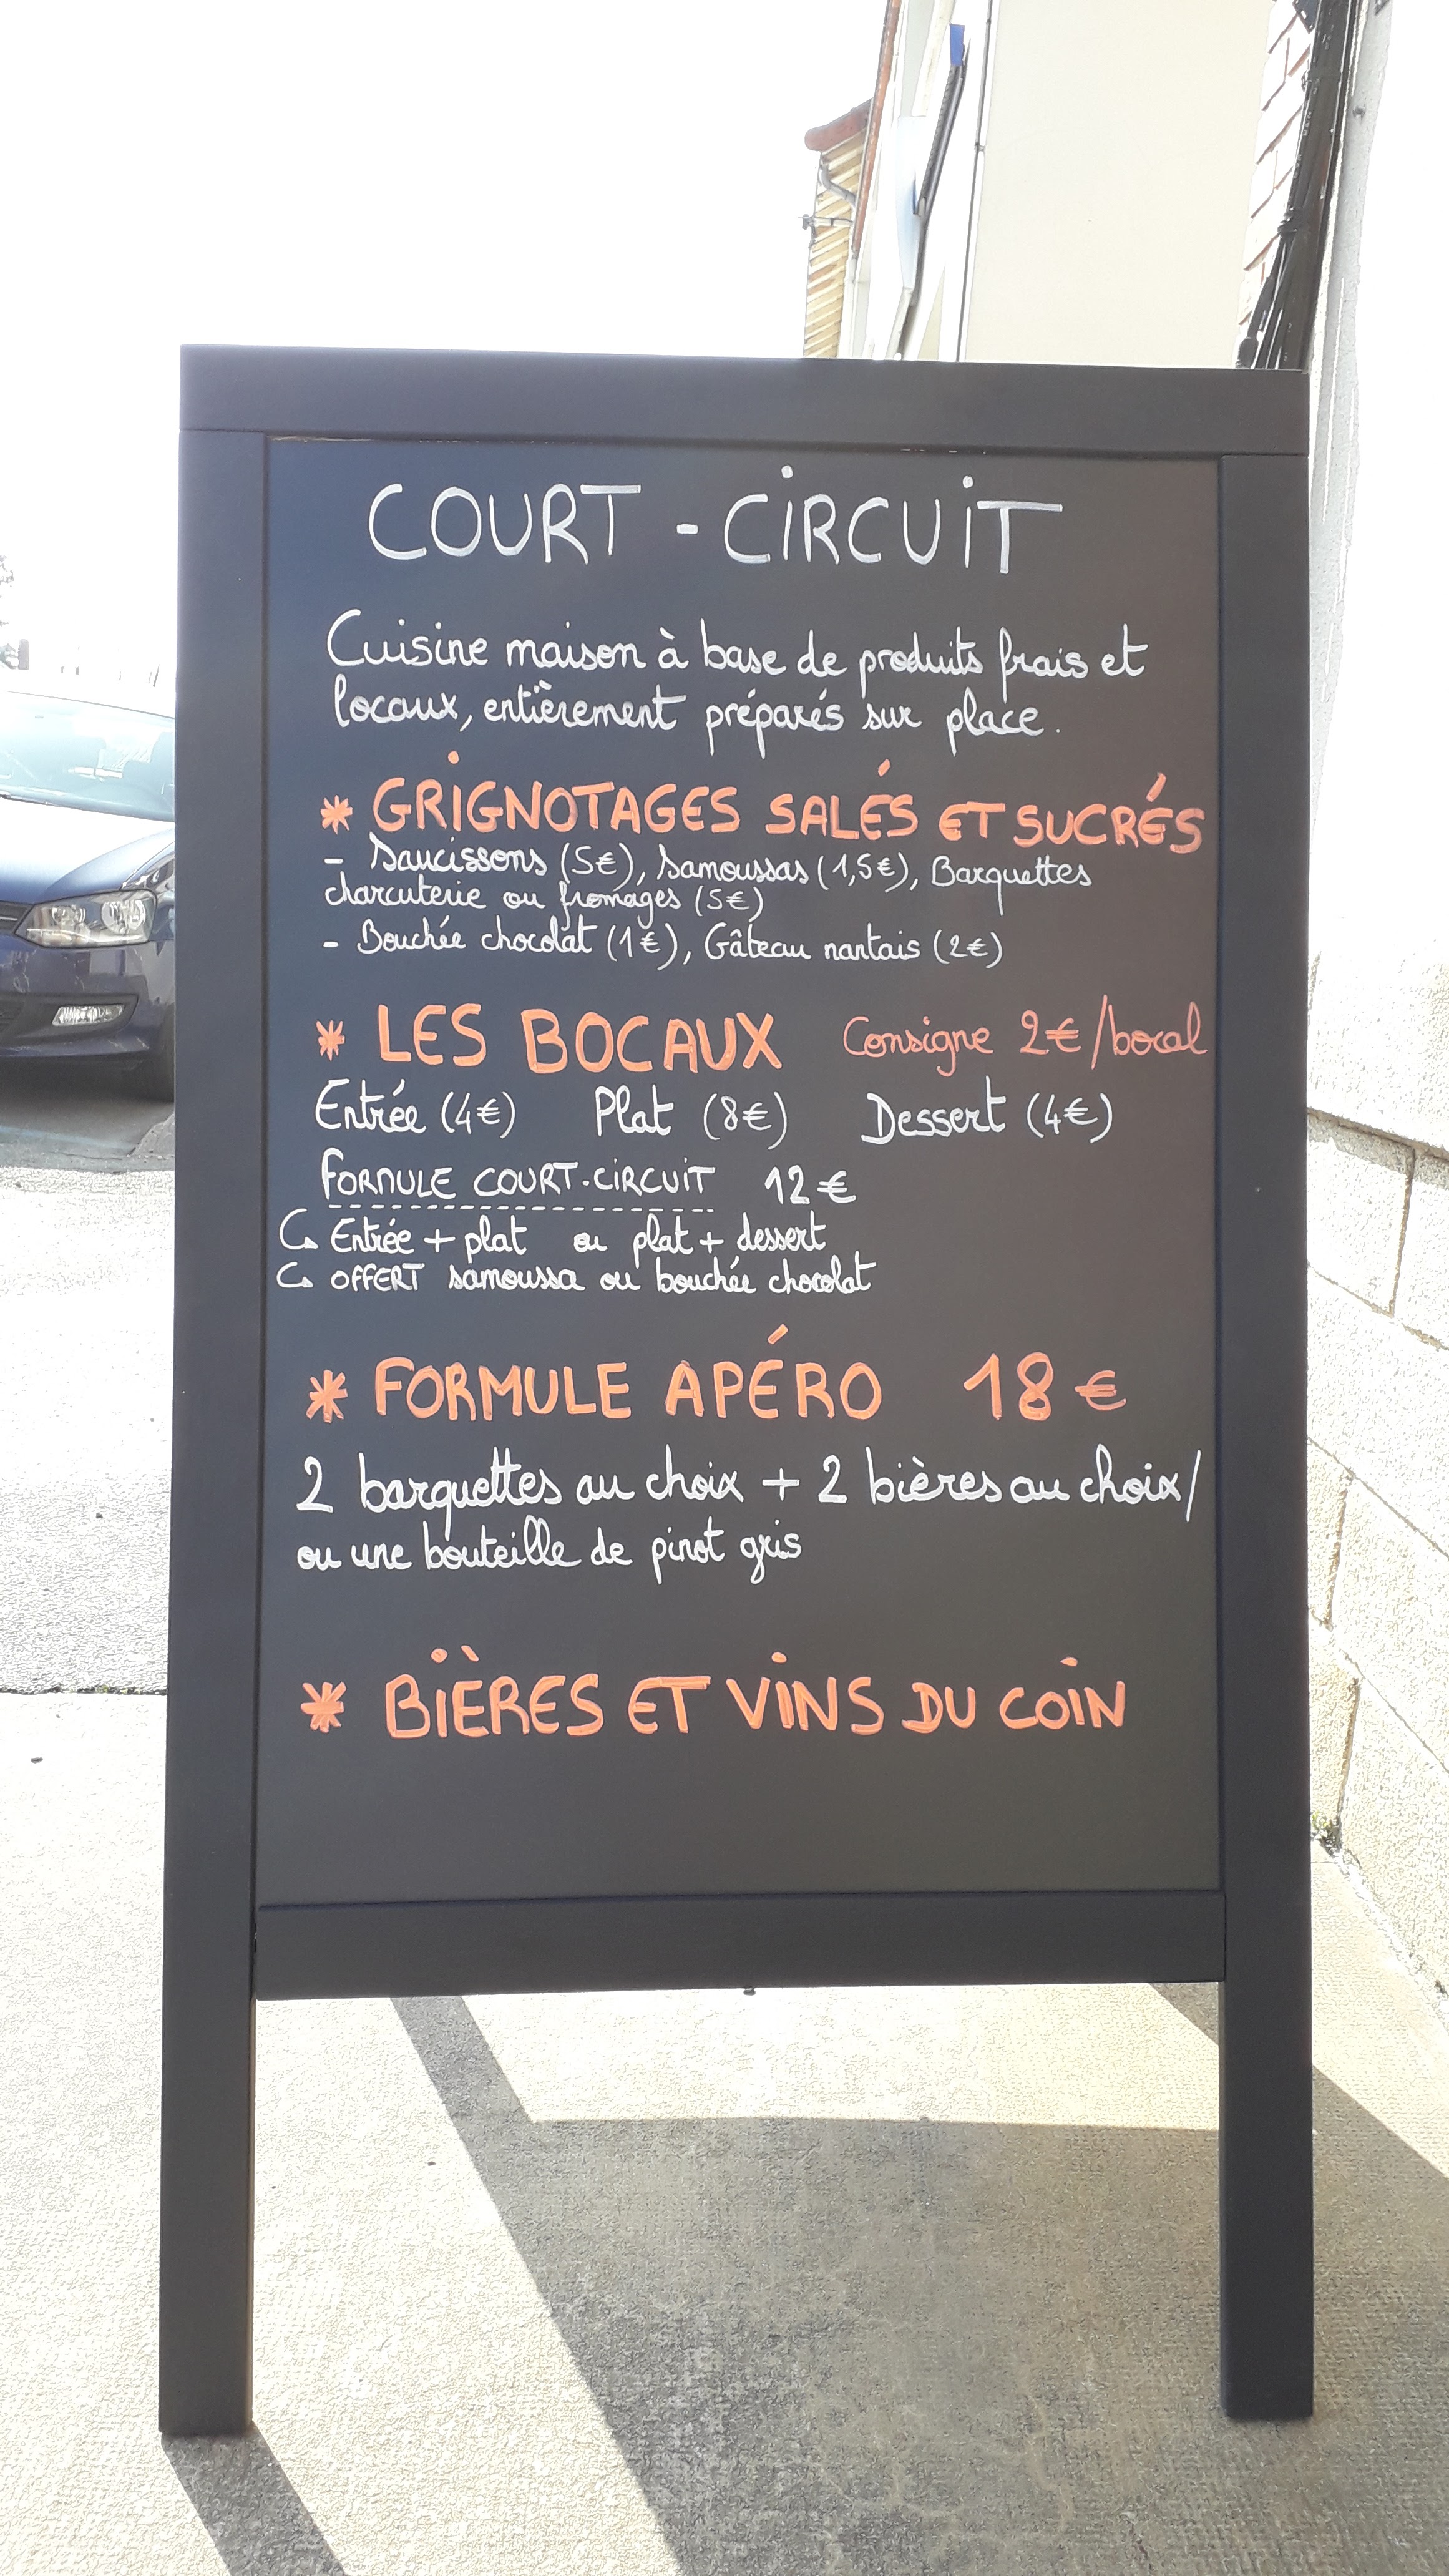 COURT - CIRCUIT
Cuisine maison à base de produits frais et
locaux, entièrement préparés sur place.
* GRIGNOTAGES SALÉS ET SUCRÉS
- Saucissons (5€), Samoussas (1,5€), Barquettes
charcuterie ou fromages (5€)
- Bouchée chocolat (1€), Gâteau nantais (2€)
* LES BOCAUX Consigne 2€/bocal
Entrée (4€) Plat (8€) Dessert (4€)
FORMULE COURT-CIRCUIT 12€
↳ Entrée + plat ou plat + dessert
↳ OFFERT samoussa ou bouchée chocolat
* FORMULE APÉRO 18€
2 barquettes au choix + 2 bières au choix/
ou une bouteille de pinot gris
* BIÈRES ET VINS DU COIN